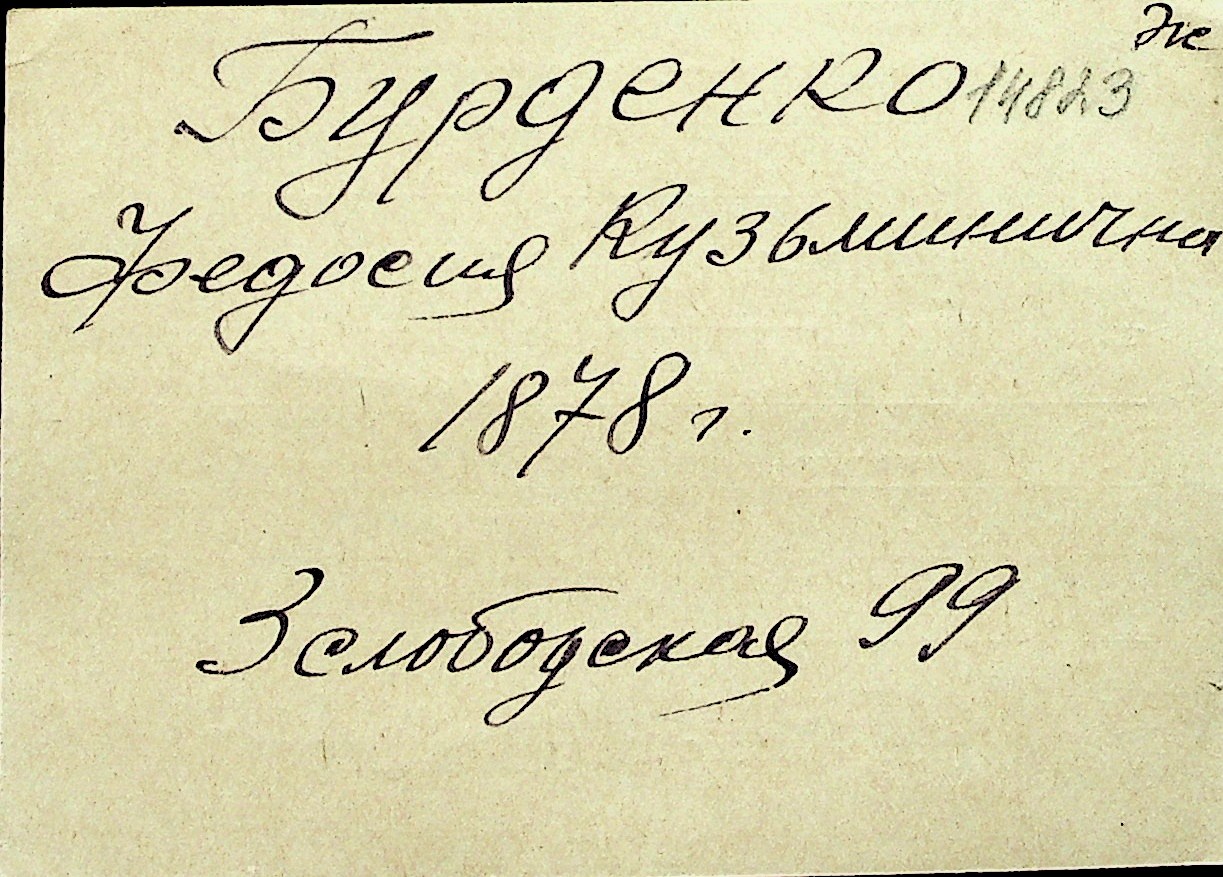 Же
Бурденко 14823
Федосия Кузьминична
1878 г.
3 слободская 99